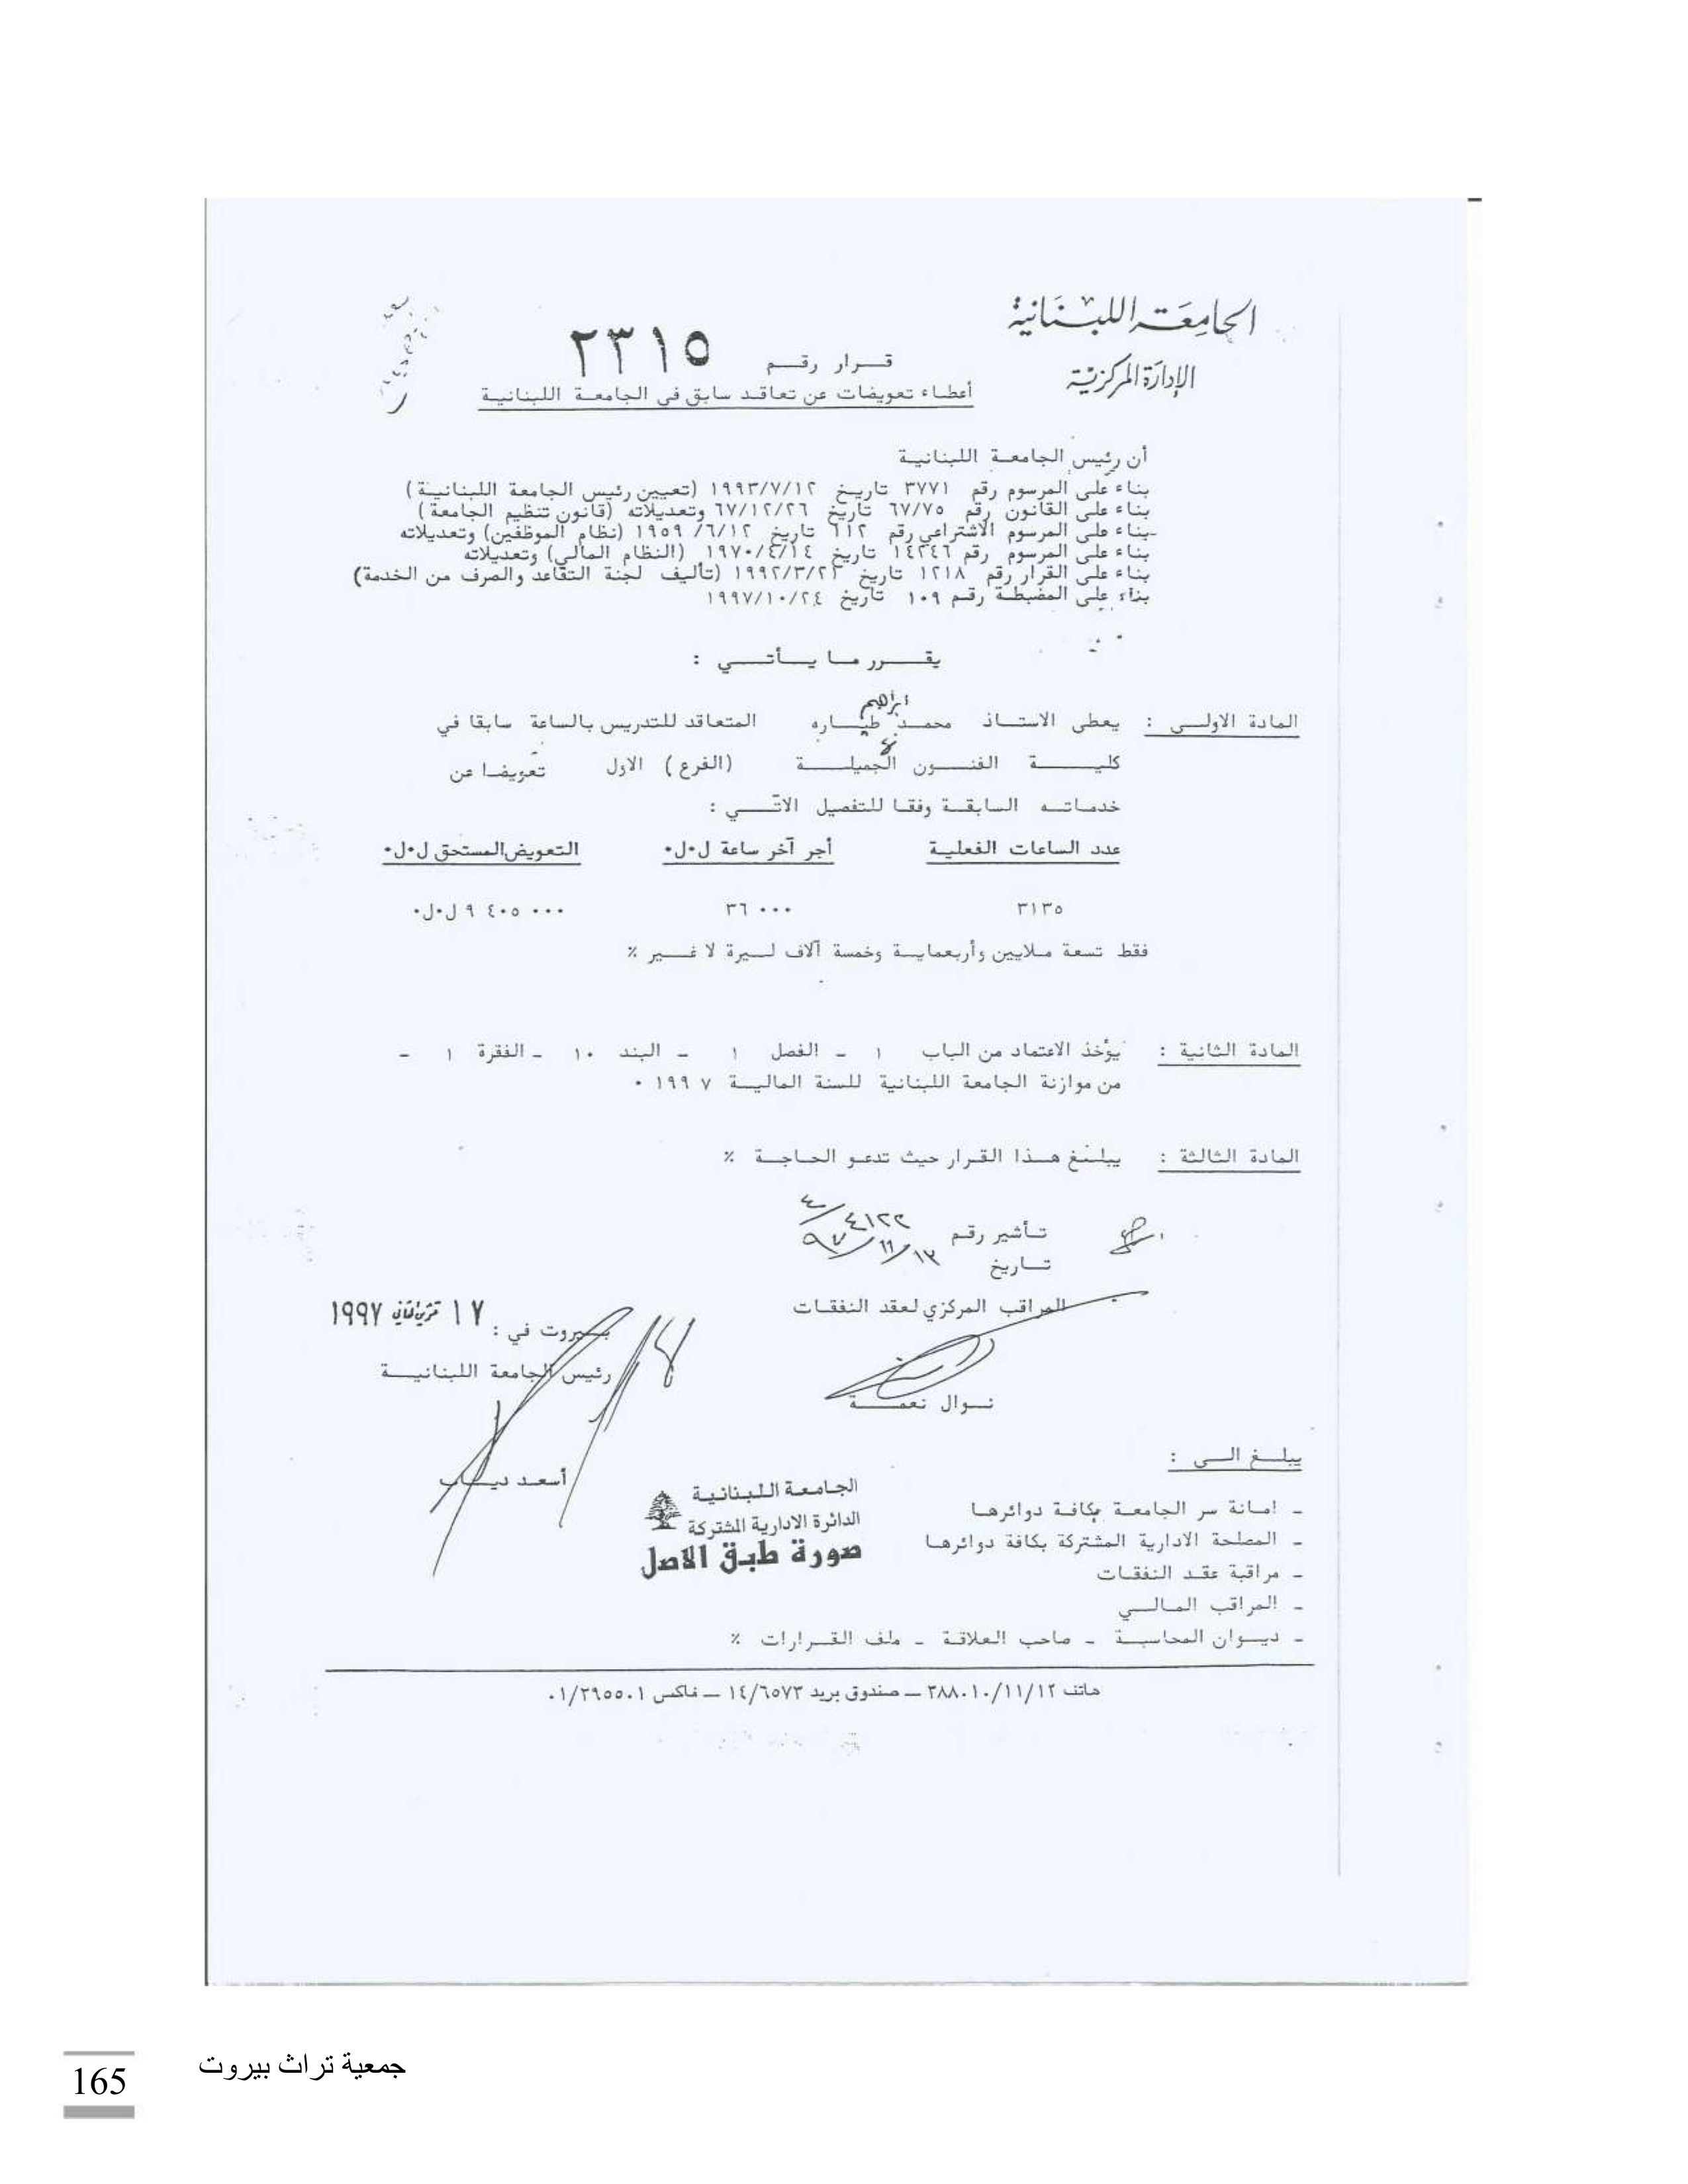 الجامعة اللبنانية
الإدارة المركزية
قرار رقم ٢٣١٥
أعطاء تعويضات عن تعاقد سابق في الجامعة اللبنانية
أن رئيس الجامعة اللبنانية
بناء على المرسوم رقم ٣٧٧١ تاريخ ١٩٩٣/٧/١٢ (تعيين رئيس الجامعة اللبنانية)
بناء على القانون رقم ٦٧/٧٥ تاريخ ٦٧/١٢/٢٦ وتعديلاته (قانون تنظيم الجامعة)
بناء على المرسوم الاشتراعي رقم ١١٢ تاريخ ١٩٥٩/٦/١٢ (نظام الموظفين) وتعديلاته
بناء على المرسوم رقم ١٤٢٤٦ تاريخ ١٩٧٠/٤/١٤ (النظام المالي) وتعديلاته
بناء على القرار رقم ١٢١٨ تاريخ ١٩٩٢/٣/٢١ (تأليف لجنة التقاعد والصرف من الخدمة)
بناء على المضبطة رقم ١٠٩ تاريخ ١٩٩٧/١٠/٢٤
يقرر ما يأتي :
المادة الاولى : يعطى الاستاذ محمد ابراهيم طباره المتعاقد للتدريس بالساعة سابقا في
كلية الفنون الجميلة (الفرع) الاول تعويضا عن
خدماته السابقة وفقا للتفصيل الآتي :
عدد الساعات الفعلية أجر آخر ساعة ل.ل. التعويض المستحق ل.ل.
٣١٣٥ ٣٦ ٠٠٠ ٩ ٤٠٥ ٠٠٠ ل.ل.
فقط تسعة ملايين وأربعماية وخمسة آلاف ليرة لا غير ٪
المادة الثانية : يؤخذ الاعتماد من الباب ١ - الفصل ١ - البند ١٠ - الفقرة ١ -
من موازنة الجامعة اللبنانية للسنة المالية ١٩٩٧ .
المادة الثالثة : يبلغ هذا القرار حيث تدعو الحاجة ٪
تأشير رقم ٤١٢٢/٤
تاريخ ١٣/١١/٩٧
المراقب المركزي لعقد النفقات
نوال نعمة
بيروت في : ١٧ تشرين الثاني ١٩٩٧
رئيس الجامعة اللبنانية
أسعد دياب
الجامعة اللبنانية
الدائرة الادارية المشتركة
صورة طبق الاصل
يبلغ الى :
- امانة سر الجامعة بكافة دوائرها
- المصلحة الادارية المشتركة بكافة دوائرها
- مراقبة عقد النفقات
- المراقب المالي
- ديوان المحاسبة - صاحب العلاقة - ملف القرارات ٪
هاتف ٣٨٨٠١٠/١١/١٢ – صندوق بريد ١٤/٦٥٧٣ – فاكس ٠١/٢٩٥٥٠١
جمعية تراث بيروت
165